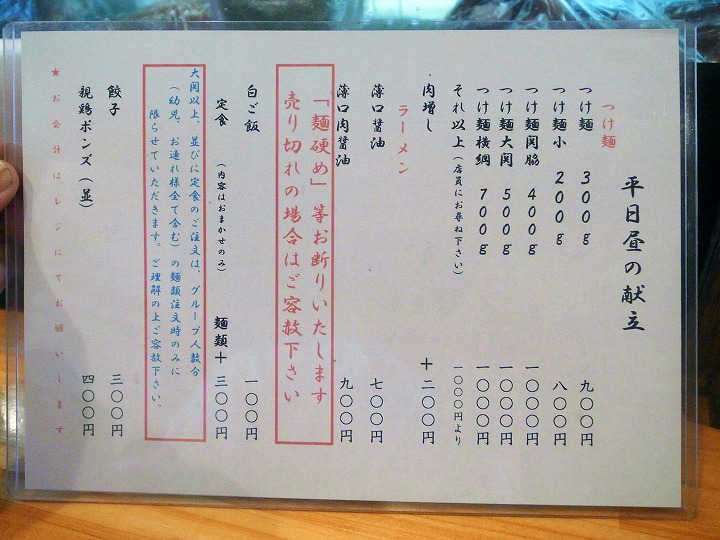 平日昼の献立
つけ麺
つけ麺 300g 九〇〇円
つけ麺小 200g 八〇〇円
つけ麺関脇 400g 一〇〇〇円
つけ麺大関 500g 一〇〇〇円
つけ麺横綱 700g 一〇〇〇円
それ以上(店員にお尋ね下さい) 一〇〇〇円より
肉増し +二〇〇円
ラーメン
薄口醤油 七〇〇円
薄口肉醤油 九〇〇円
「麺硬め」等お断りいたします
売り切れの場合はご容赦下さい
白ご飯 一〇〇円
定食 (内容はおまかせのみ) 麺類+三〇〇円
大関以上、並びに定食のご注文は、グループ人数分
(幼児、お連れ様全て含む)の麺類注文時のみに
限らせていただきます。ご理解の上ご容赦下さい。
餃子 三〇〇円
親鶏ポンズ(並) 四〇〇円
★お会計はレジにてお願いします